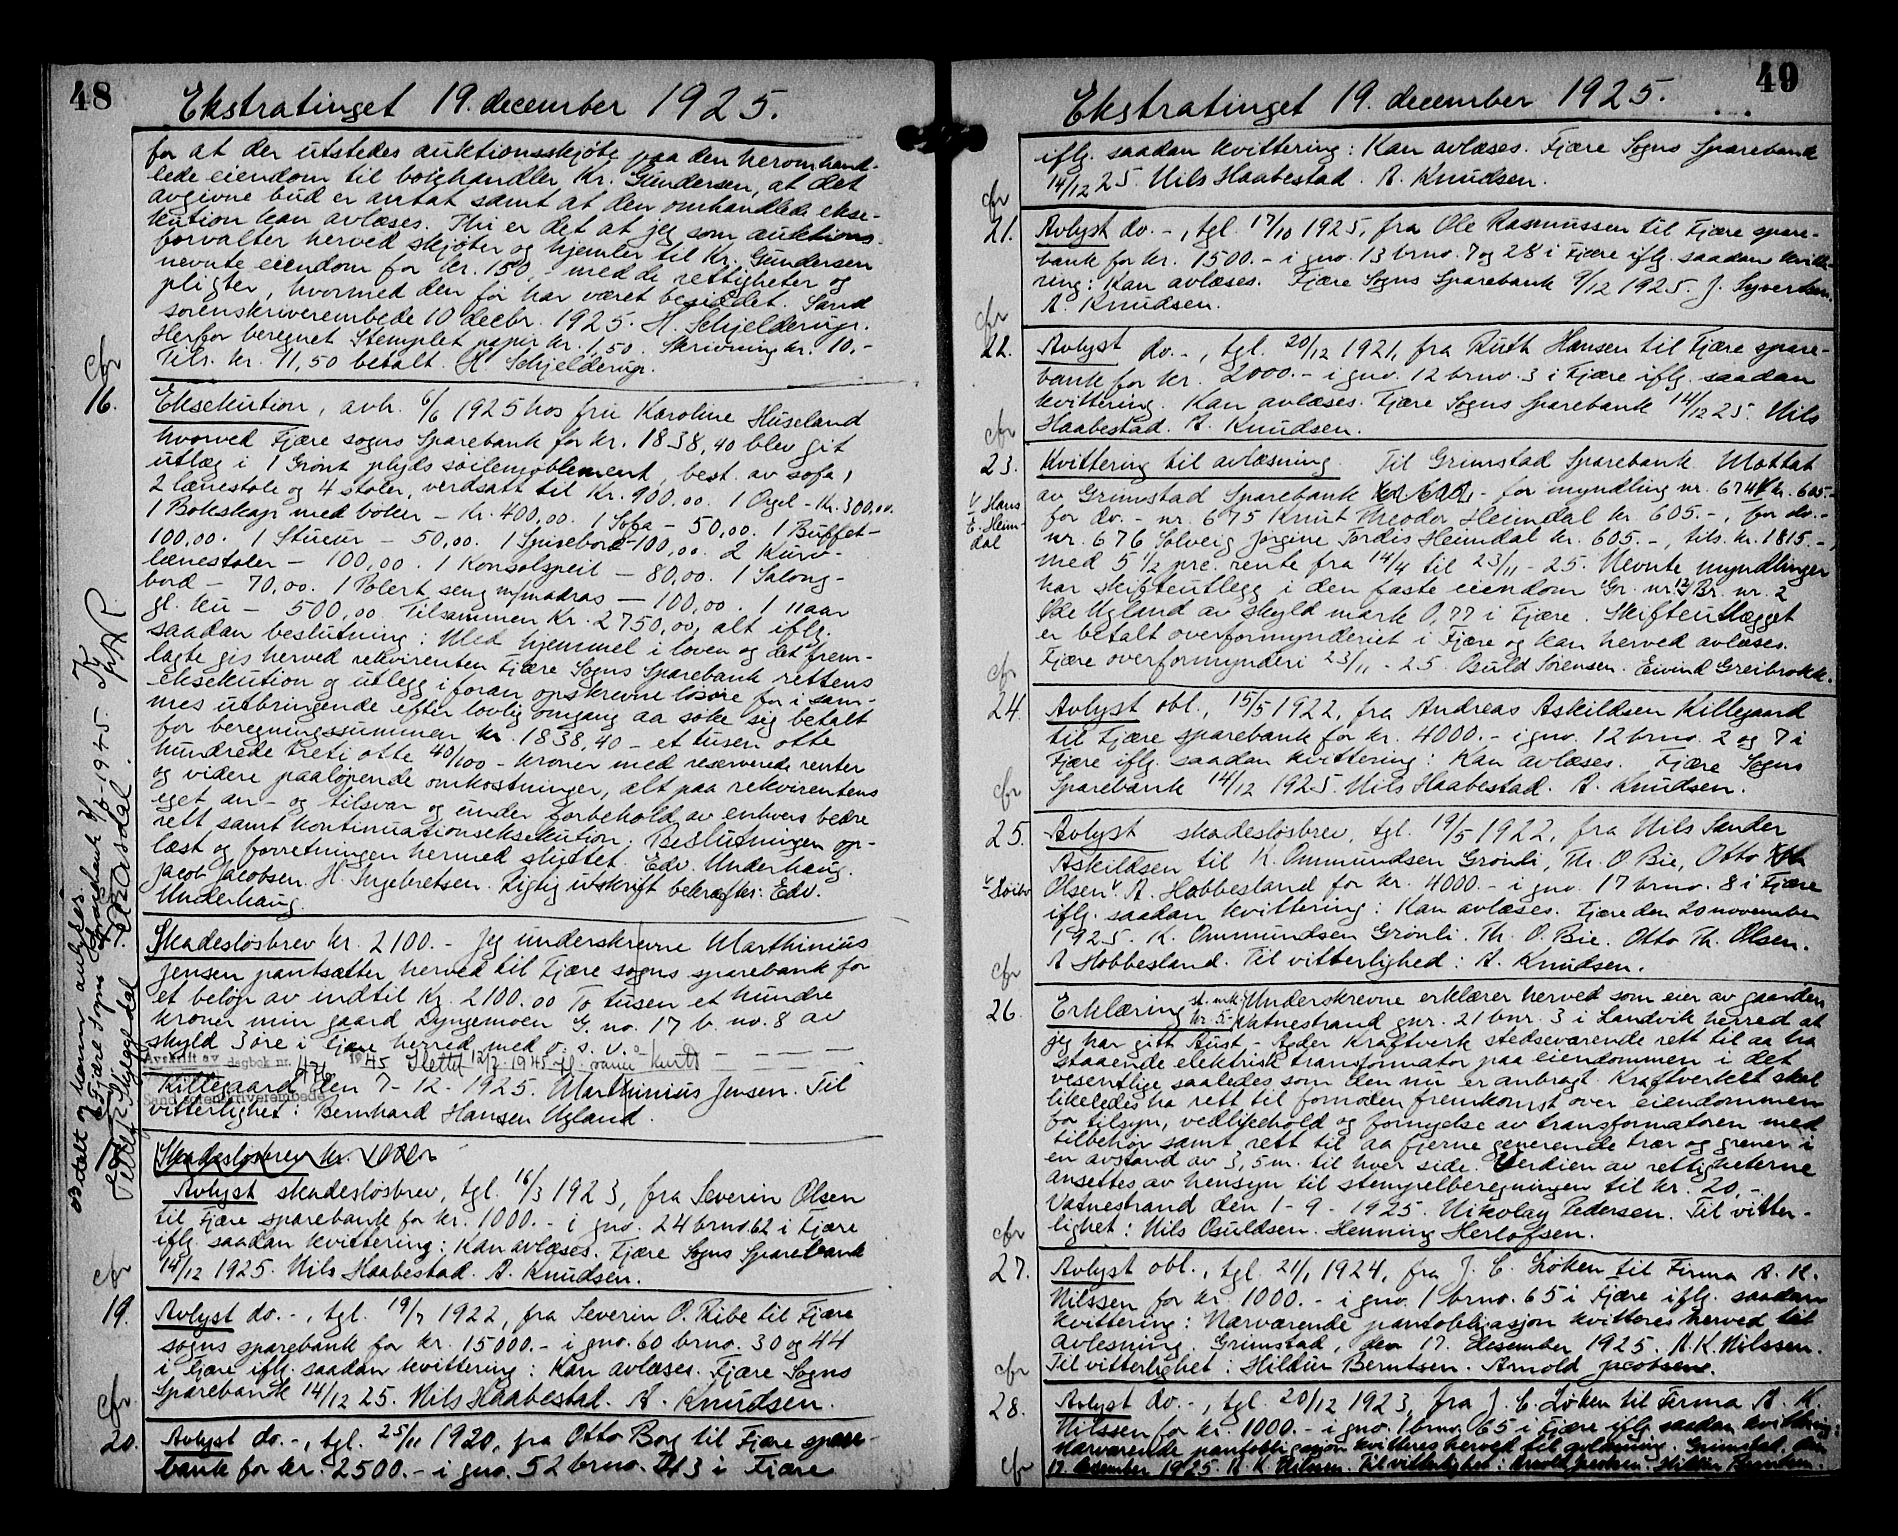 48
Ekstratinget 19. december 1925.
for at der utstedes auktionsskjøte paa den heromhand-
lede eiendom til bokhandler Kr. Gundersen, at det
avgivne bud er antat samt at den omhandlede ekse-
kution kan avlæses. Thi er det at jeg som auktions-
forvalter herved skjøter og hjemler til Kr. Gundersen
nevnte eiendom for kr. 150,- med de rettigheter og
pligter, hvormed den før har været besiddet. Sand
sorenskriverembede 10 decbr. 1925. H. Schjelderup.
Herfor beregnet Stemplet papir kr. 1,50. Skrivning kr. 10.-
Tils. kr. 11,50 betalt. H. Schjelderup.
cfr
16.
Eksekution, avh. 6/6 1925 hos fru Karoline Huseland
hvorved Fjære sogns Sparebank for kr. 1838,40 blev git
utlæg i 1 Grønt plyds søilemøblement, best. av sofa,
2 lænestole og 4 stoler, verdsatt til Kr. 900,00. 1 Orgel - Kr. 300,00.
1 Bokskap med bøker - Kr. 400,00. 1 Sofa - 50,00. 1 Buffet-
100,00. 1 Stueur - 50,00. 1 Spisebord - 100,00. 2 Kurv-
lænestoler - 100,00. 1 Konsolspeil - 80,00. 1 Salong-
bord - 70,00. 1 Polert seng m/madras - 100,00. 1 11 aar
gl. ku - 500,00 Tilsammen Kr. 2750,00, alt iflg.
saadan beslutning: Med hjemmel i loven og det frem-
lagte gis herved rekvirenten Fjære Sogns Sparebank rettens
eksekution og utlegg i foran opskrevne løsøre for i sam-
mes utbringende efter lovlig omgang aa søke sig betalt
for beregningssummen kr. 1838,40 - et tusen otte
hundrede treti otte 40/100 - kroner med reserverede renter
og videre paaløpende omkostninger, alt paa rekvirentens
eget an- og tilsvar og under forbehold av enhvers bedre
rett samt kontinuationseksekution. Beslutningen op-
læst og forretningen hermed sluttet. Edv. Underhaug.
Jacob Jacobsen. H. Ingebretsen. Rigtig utskrift bekræftes: Edv.
Underhaug.
Skadesløsbrev kr. 2100.- Jeg underskrevne Marthinius
Jensen pantsætter herved til Fjære sogns sparebank for
et beløp av indtil Kr. 2100.00 To tusen et hundre
kroner min gaard Dyngemoen G. no. 17 b. no. 8 av
skyld 3 øre i Fjære herred med o. s. v.
Avskrift av dagbok nr. 476 1945 Slettet 12/7 1945
Killegaard den 7-12-1925. Marthinius Jensen. Til
Sand sorenskriverembede
vitterlighet: Bernhard Hansen Ugland.
Skadesløsbrev kr. 1000.-
Avlyst skadesløsbrev, tgl. 16/3 1923, fra Severin Olsen
til Fjære sparebank for kr. 1000.- i gno. 24 brno 62 i Fjære
iflg. saadan kvittering: Kan avlæses. Fjære Sogns Sparebank
14/12 1925. Nils Haabestad. A. Knudsen.
cfr
19.
Avlyst do.-, tgl. 19/7 1922, fra Severin O. Ribe til Fjære
sogns sparebank for kr. 15000.- i gno. 60 brno. 30 og 44
i Fjære iflg. saadan kvittering: Kan avlæses. Fjære Sogns
Sparebank 14/12 25. Nils Haabestad. A. Knudsen.
cfr
20.
Avlyst do.-, tgl. 25/11 1920, fra Otto Bog til Fjære spare-
bank for kr. 2500.- i gno. 52 brno. 243 i Fjære
49
Ekstratinget 19. december 1925.
iflg. saadan kvittering: Kan avlæses. Fjære Sogns Sparebank
14/12 25. Nils Haabestad. A. Knudsen.
cfr
21.
Avlyst do.-, tgl. 17/10 1925, fra Ole Rasmussen til Fjære spare-
bank for kr. 1500.- i gno. 13 brno. 7 og 28 i Fjære iflg. saadan kvitte-
ring: Kan avlæses. Fjære Sogns Sparebank 9/12 1925. J. Syvertsen.
A. Knudsen.
cfr
22.
Avlyst do.-, tgl. 20/12 1921, fra Ruth Hansen til Fjære spare-
bank for kr. 2000.- i gno. 12 brno. 3 i Fjære iflg. saadan
kvittering. Kan avlæses. Fjære Sogns Sparebank 14/12 25. Nils
Haabestad. A. Knudsen.
cfr
23.
Kvittering til avlæsning. Til Grimstad Sparebank. Mottat
av Grimstad Sparebank for myndling nr. 674 kr. 605.-
v Hans
E. Heim-
dal
for do.- nr. 675 Knut Theodor Heimdal kr. 605.-, for do.-
nr. 676 Solveig Jorgine Tordis Heimdal kr. 605.-, tils. kr. 1815.-,
med 5 1/2 prc. rente fra 14/4 til 23/11 - 25. Nevnte myndlinger
har skifteutlegg i den faste eiendom Gr. nr. 12 Br. nr. 2
Øde Ugland av skyld mark 0,77 i Fjære. Skifteutlægget
er betalt overformynderiet i Fjære og kan herved avlæses.
Fjære overformynderi 23/11 - 25. Osuld Sørensen. Eivind Greibrokk.
cfr
24.
Avlyst obl., 15/5 1922, fra Andreas Askildsen Killegaard
til Fjære sparebank for kr. 4000.- i gno. 12 brno. 2 og 7 i
Fjære iflg. saadan kvittering: Kan avlæses. Fjære Sogns
Sparebank 14/12 1925. Nils Haabestad. A. Knudsen.
cfr
25.
Avlyst skadesløsbrev, tgl. 19/5 1922, fra Nils Sander
Askildsen til K. Ommundsen Grønli, Th. O. Bie, Otto Th.
Olsen v A. Hobbesland for kr. 4000.- i gno. 17 brno. 8 i Fjære
iflg. saadan kvittering: Kan avlæses. Fjære den 20 november
1925. K. Ommundsen Grønli. Th. O. Bie. Otto Th. Olsen.
A Hobbesland. Til vitterlighet: A. Knudsen.
cfr
26.
Erklæring st. mk. kr. 5.- Underskrevne erklærer herved som eier av gaarden
Vatnestrand gnr. 21 bnr. 3 i Landvik herred at
jeg har gitt Aust-Agder Kraftverk stedsevarende rett til aa ha
staaende elektrisk transformator paa eiendommen i det
vesentlige saaledes som den nu er anbragt. Kraftverket skal
likeledes ha rett til fornøden fremkomst over eiendommen
for tilsyn, vedlikehold og fornyelse av transformatoren med
tilbehør samt rett til aa fjerne generende trær og grener i
en avstand av 3,5 m. til hver side. Verdien av rettigheterne
ansettes av hensyn til stempelberegningen til kr. 20,-.
Vatnestrand den 1-9-1925. Nikolay Pedersen. Til vitter-
lighet: Nils Osuldsen. Henning Herlofsen.
cfr
27.
Avlyst obl., tgl. 21/1 1924, fra J. C. Løken til Firma A. K.
Nilssen for kr. 1000.- i gno. 1 brno. 65 i Fjære iflg. saadan
kvittering: Nærværende pantobligasjon kvitteres herved til
avlesning. Grimstad, den 17. desember 1925. A. K. Nilssen.
Til vitterlighet: Hildur Berntsen. Arnold Jacobsen.
cfr
28.
Avlyst do.-, tgl. 20/12 1923, fra J. C. Løken til Firma A. K.
Nilssen for kr. 1000.- i gno. 1 brno. 65 i Fjære iflg. saadan kvittering:
Nærværende pantobligasjon kvitteres herved til avlesning. Grimstad, den
17. desember 1925. A. K. Nilssen. Til vitterlighet: Arnold Jacobsen. Hildur Berntsen.
cfr